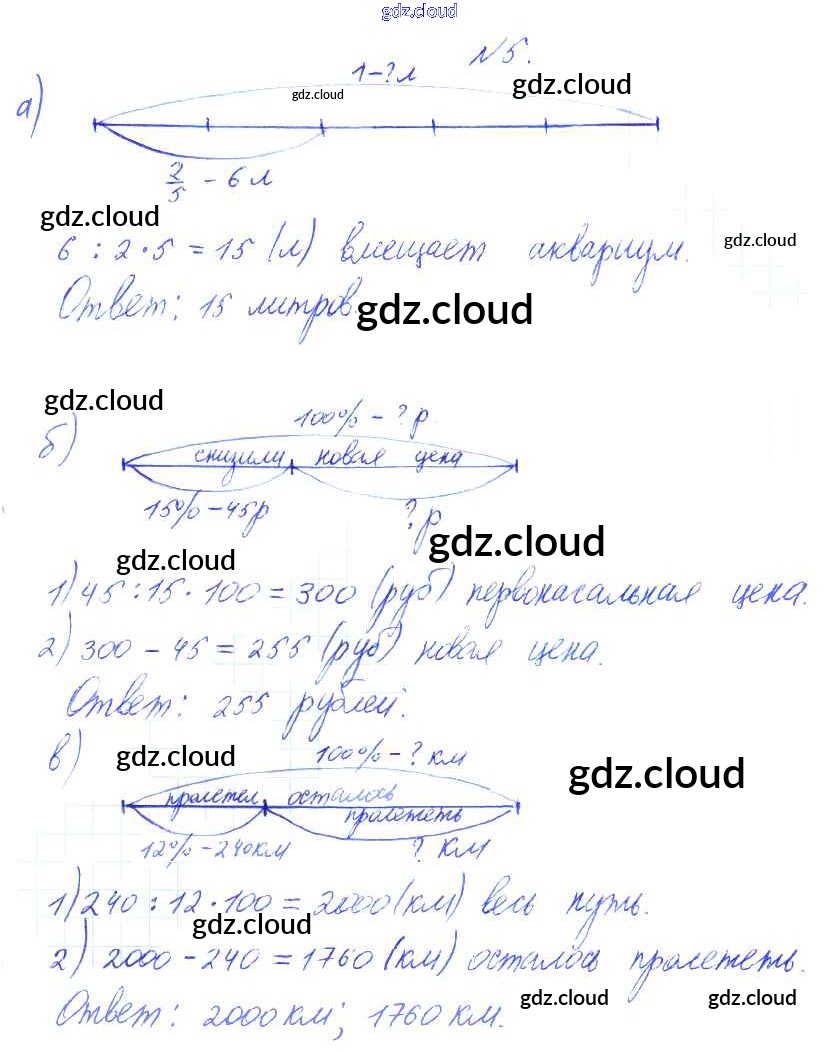 gdz.cloud
№5.
1-?л
gdz.cloud
gdz.cloud
а)
2/5 - 6 л
gdz.cloud
6 : 2 · 5 = 15 (л) вмещает аквариум.
gdz.cloud
Ответ: 15 литров.
gdz.cloud
gdz.cloud
100% - ? р.
б)
снизили новая цена
15% - 45р
? р
gdz.cloud
gdz.cloud
1) 45 : 15 · 100 = 300 (руб) первоначальная цена.
2) 300 - 45 = 255 (руб) новая цена.
Ответ: 255 рублей.
в)
gdz.cloud
100% - ? км
gdz.cloud
пролетел осталось
пролететь
12% - 240км
? км
1) 240 : 12 · 100 = 2000 (км) весь путь.
gdz.cloud
2) 2000 - 240 = 1760 (км) осталось пролететь.
gdz.cloud
gdz.cloud
Ответ: 2000 км; 1760 км.